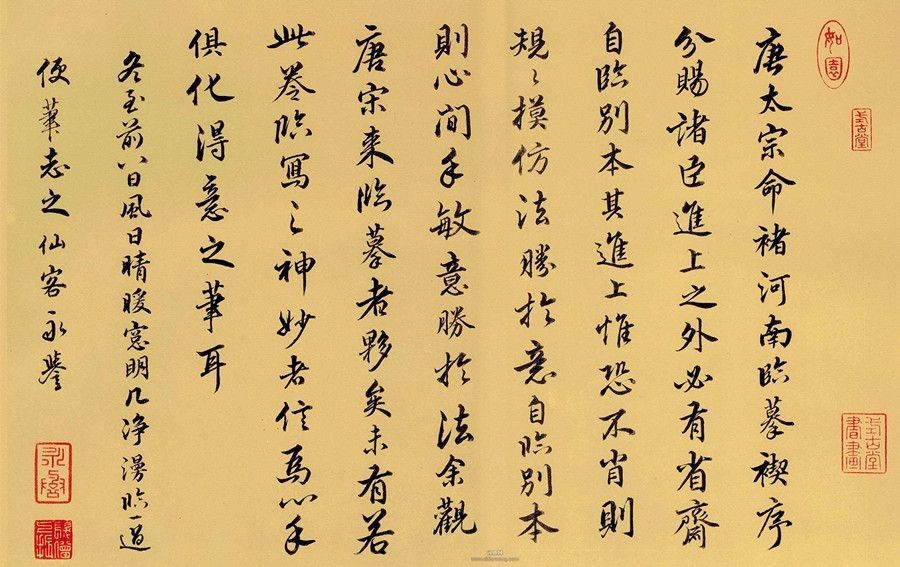 如園
式古堂
式古堂書畫
唐太宗命褚河南臨摹禊序
分賜諸臣進上之外必有省齋
自臨別本其進上惟恐不肖則
規々摸仿法勝於意自臨別本
則心間手敏意勝於法余觀
唐宋来臨摹者夥矣未有若
此卷臨寫之神妙者信為心手
俱化得意之筆耳
冬至前八日風日晴暖窓明几净漫臨一過
便筆志之仙客永譽